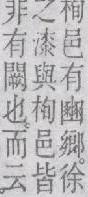 栒邑有豳鄉徐
之漆與栒邑皆
非有闕也而云